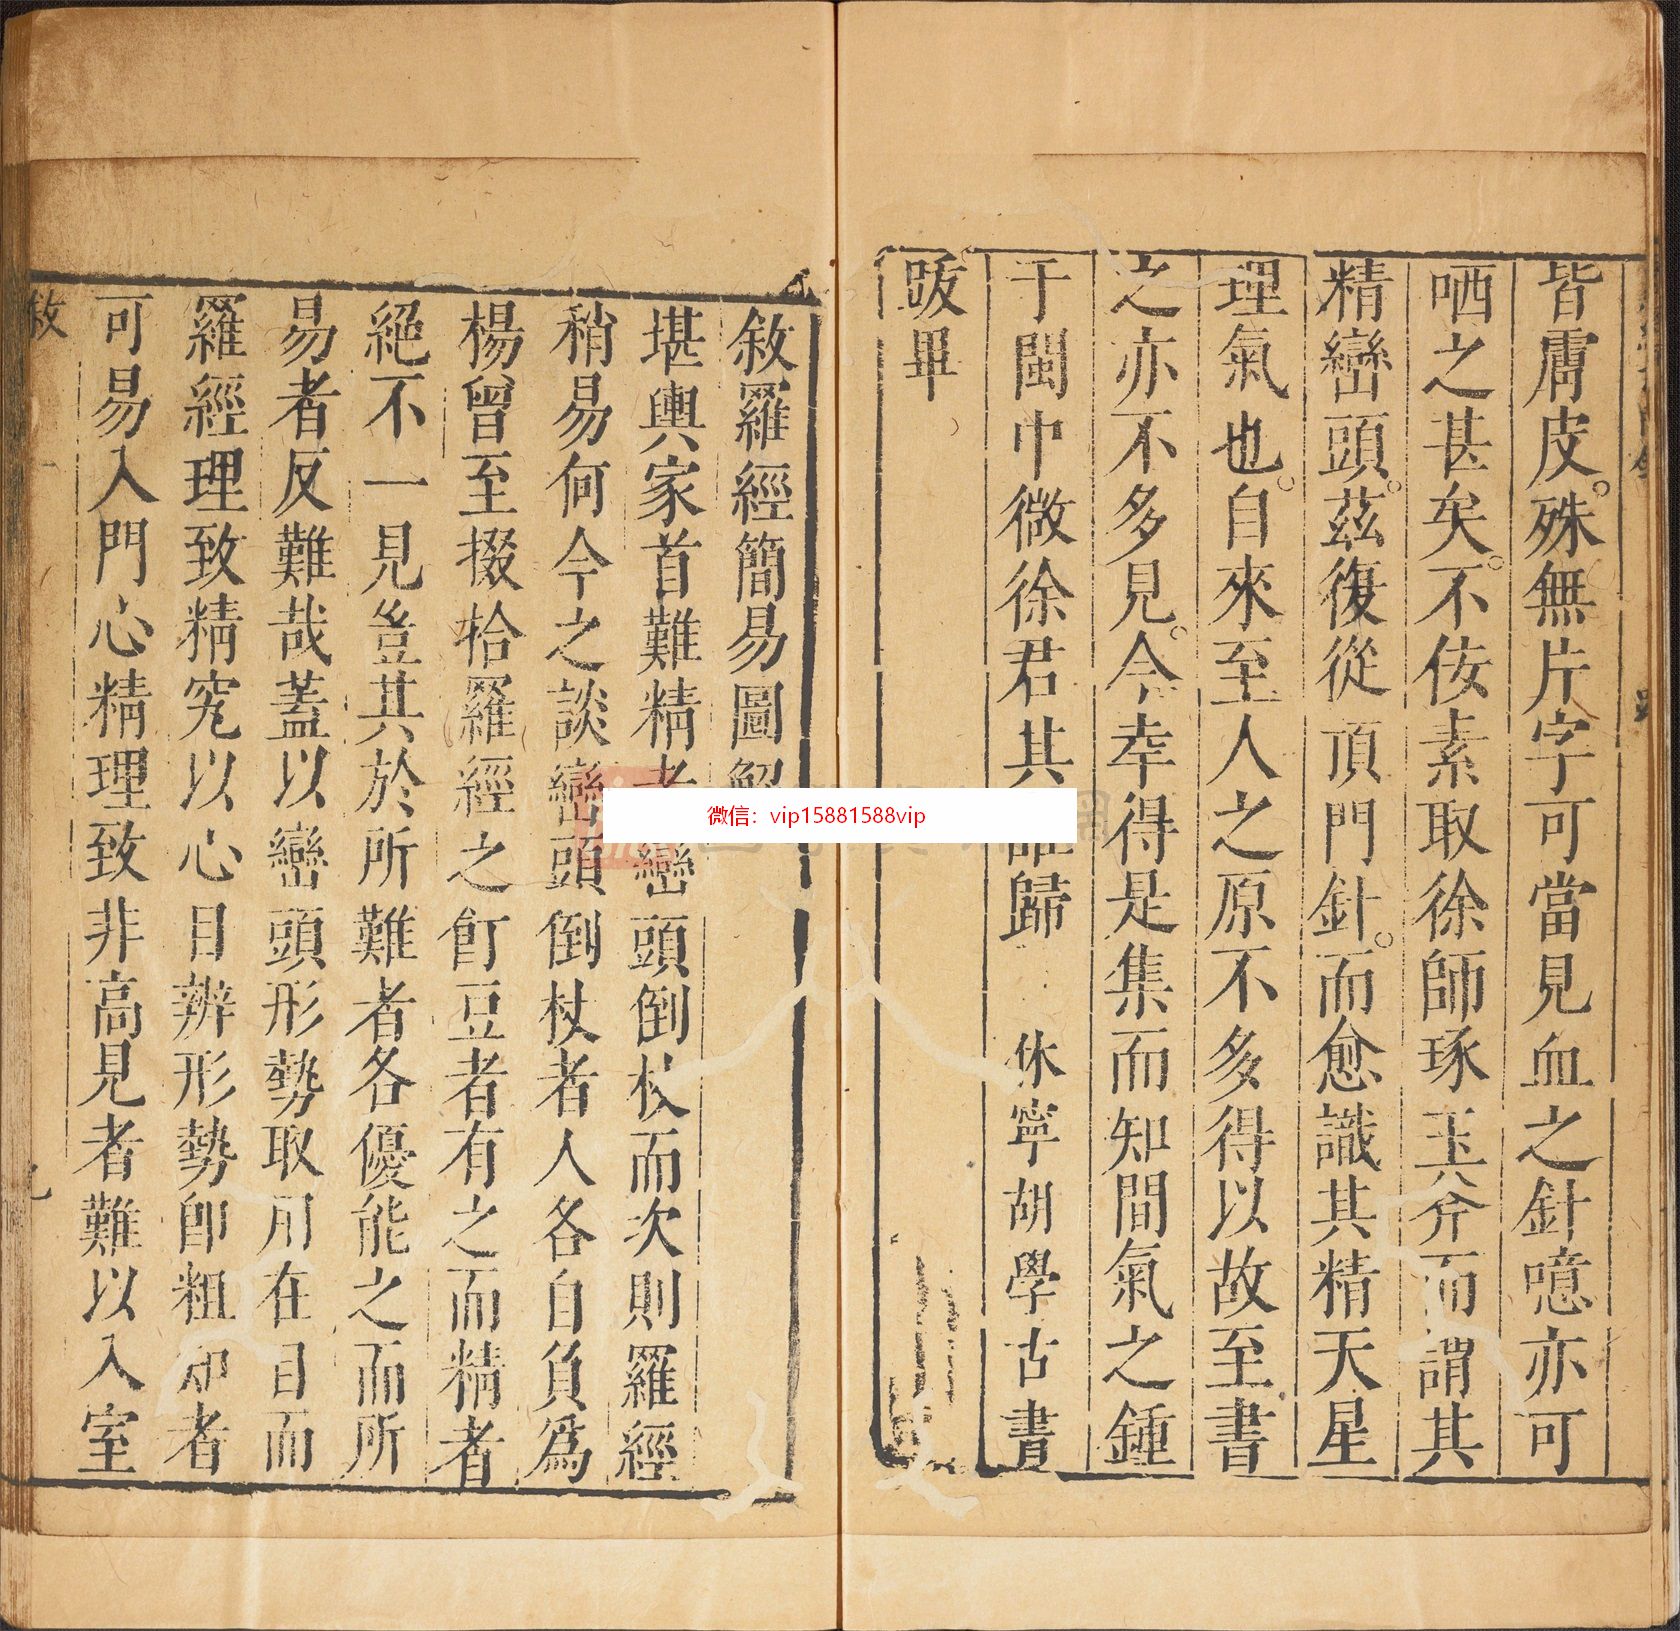 皆膚皮。殊無片字可當見血之針噫亦可
哂之甚矣。不侫素取徐師琢玉斧而謂其
精巒頭。茲復從頂門針。而愈識其精天星
理氣也。自來至人之原不多得以故至書
之亦不多見。今幸得是集而知間氣之鍾
于閩中微徐君其歸 休寧胡學古書
跋畢
敘羅經簡易圖解
堪輿家首難精者巒頭倒杖而次則羅經
稍易何今之談巒頭倒杖者人各自負爲
楊曾至掇拾羅經之飣豆者有之而精者
絕不一見豈其於所難者各優能之而所
易者反難哉蓋以巒頭形勢取用在目而
羅經理致精究以心目辨形勢卽粗知者
可易入門心精理致非高見者難以入室
敘
微信：vip15881588vip